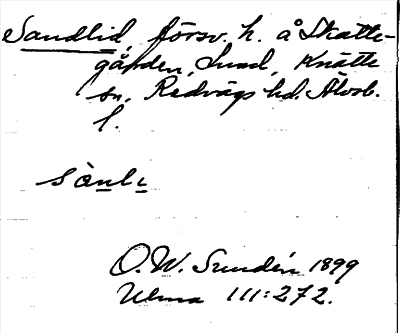 Sandlid, försv. h. å Skatte-
gården, Lund, Knätte
sn, Redvägs hd. Älvsb.
l.
sànlı
O. W. Sundén 1899
Ulma 111:272.